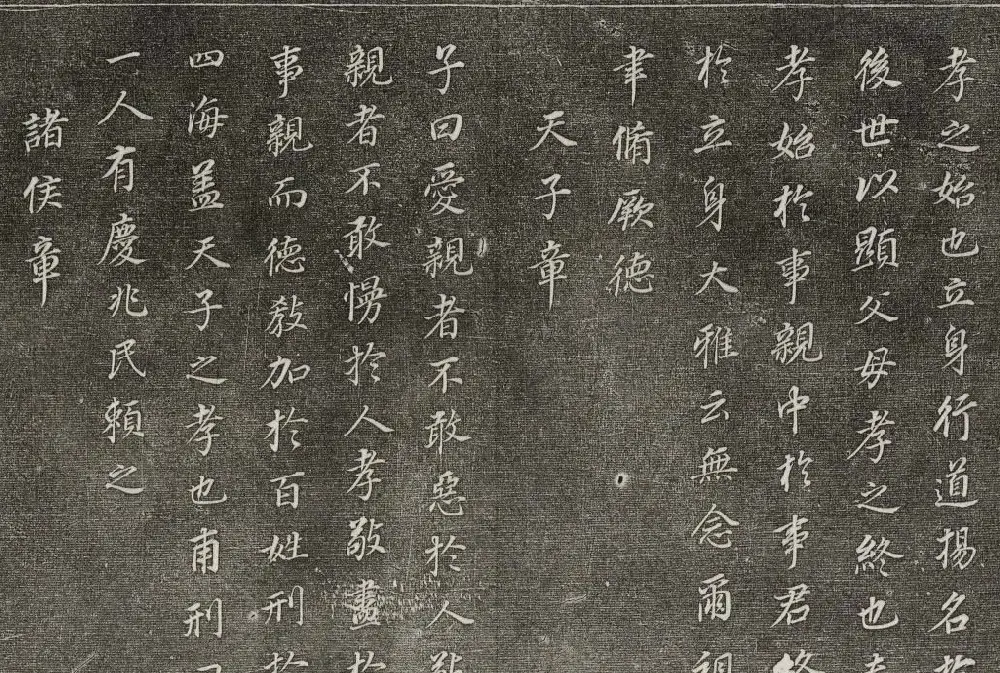 孝之始也立身行道揚名於
後世以顯父母孝之終也夫
孝始於事親中於事君終
於立身大雅云無念爾祖
聿脩厥德
天子章
子曰愛親者不敢惡於人敬
親者不敢慢於人孝敬盡於
事親而德教加於百姓刑於
四海蓋天子之孝也甫刑云
一人有慶兆民賴之
諸侯章